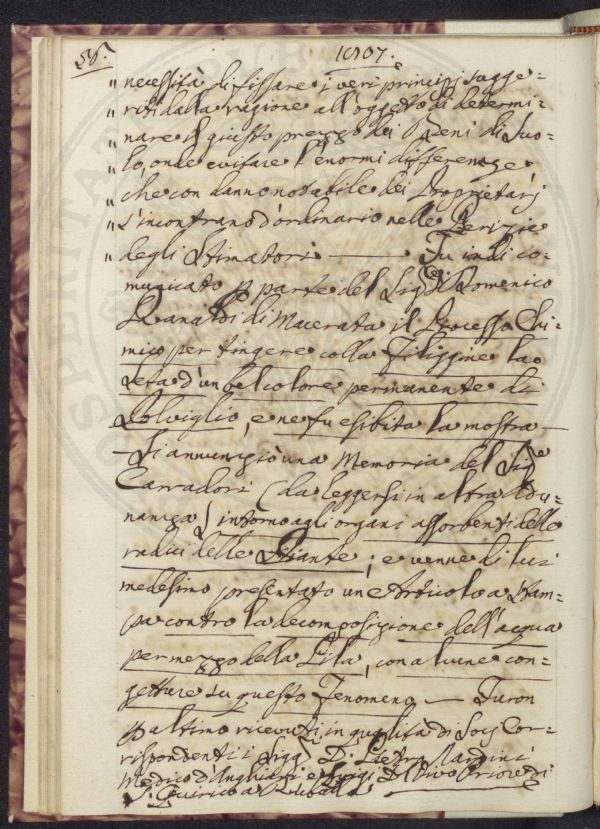 56.
1807.
" necessità di fissare i veri principj sugge=
" riti dalla ragione all'oggetto di determi=
" nare il giusto prezzo dei Beni di Suo=
" lo, onde evitare l'enormi differenze
" che con danno notabile dei Proprietarj
" s'incontrano d'ordinario nelle Perizie
" degli Stimatori — Fu indi co=
municato p parte del Sig. Domenico
di Macerata il Processo Chi=
mico per tingere colla Filiggine la
Seta d'un bel colore permanente di
, e ne fu esibita la mostra —
— Si annunziò una Memoria del Sig.re
Carradori (da leggersi in altra Adu=
nanza) intorno agli organi assorbenti delle
radici delle Piante; e venne di lui
medesimo presentato un Articolo a Stam=
pa contro la decomposizione dell'acqua
per mezzo della Pila, con alcune con=
getture su questo Fenomeno — Furon
p altimo ricevuti in qualità di Socj Cor=
rispondenti i Sigg. D. Pietro Nardini
Medico d'Anghiari e Luigi Priore di
S. Quirico a